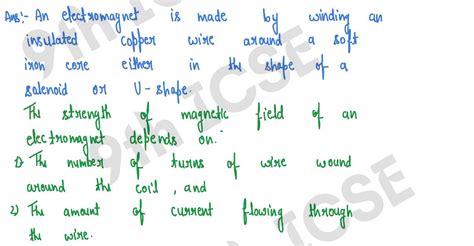 Ans:- An electromagnet is made by winding an
insulated copper wire around a soft
iron core either in the shape of a
solenoid or U-shape.
The strength of magnetic field of an
electromagnet depends on:
1) The number of turns of wire wound
around the coil, and
2) The amount of current flowing through
the wire.
9th ICSE
9th ICSE